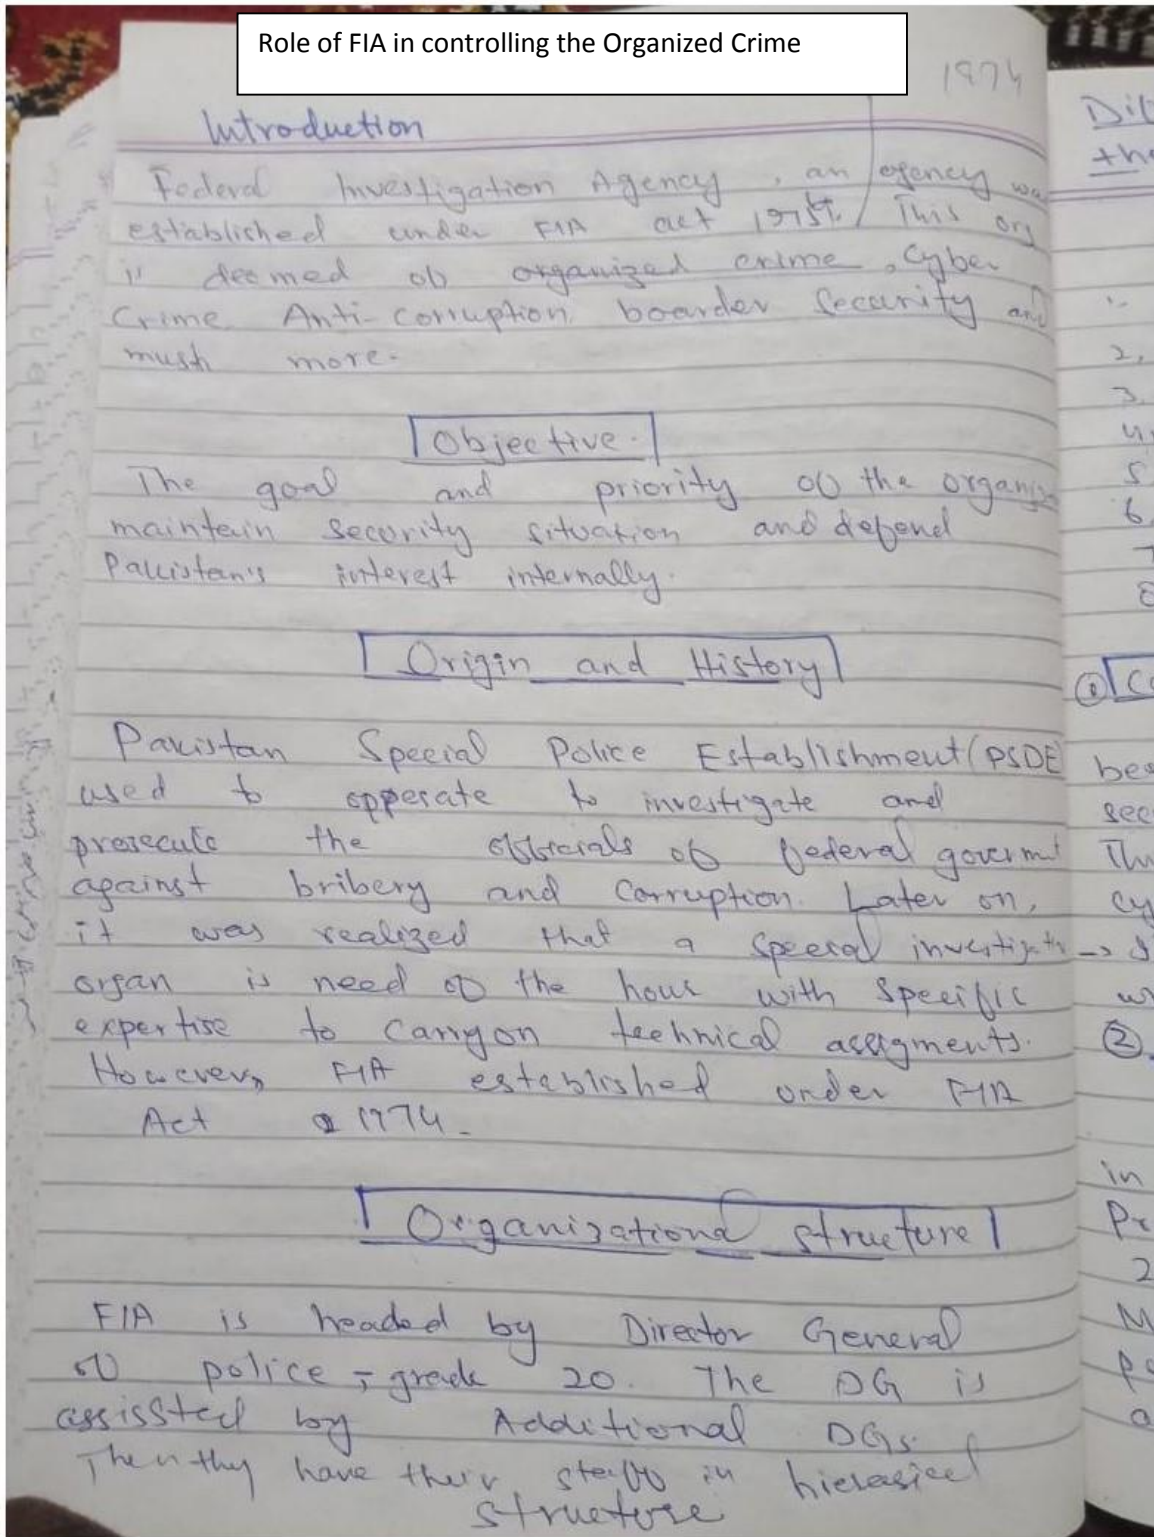 Role of FIA in controlling the Organized Crime
1974
Introduction
Federal Investigation Agency, an agency was
established under FIA act 1975. This org
is deemed ob organized crime, Cyber
Crime Anti-corruption boarder security and
mush more.
Objective.
The goal and priority ob the organiz
maintain security situation and defend
Pakistan's interest internally.
Origin and History
Pakistan Special Police Establishment (PSDE
used to opperate to investigate and
prosecute the obbicials ob federal goverment
against bribery and Corruption. Later on,
it was realized that a special investigatn
organ is need ob the hour with specific
expertise to carryon technical assigments.
However, FIA established under FIA
Act 1974.
Organizational structure
FIA is headed by Director General
ob police - grade 20. The DG is
assissted by Additional DGs.
Then thy have their staff in hierasicel
structure
Dib
the
1-
2,
3.
4.
5
6.
7
8
① Co
bee
sec
Thi
cy
②
in
Pr
2
M
pe
a